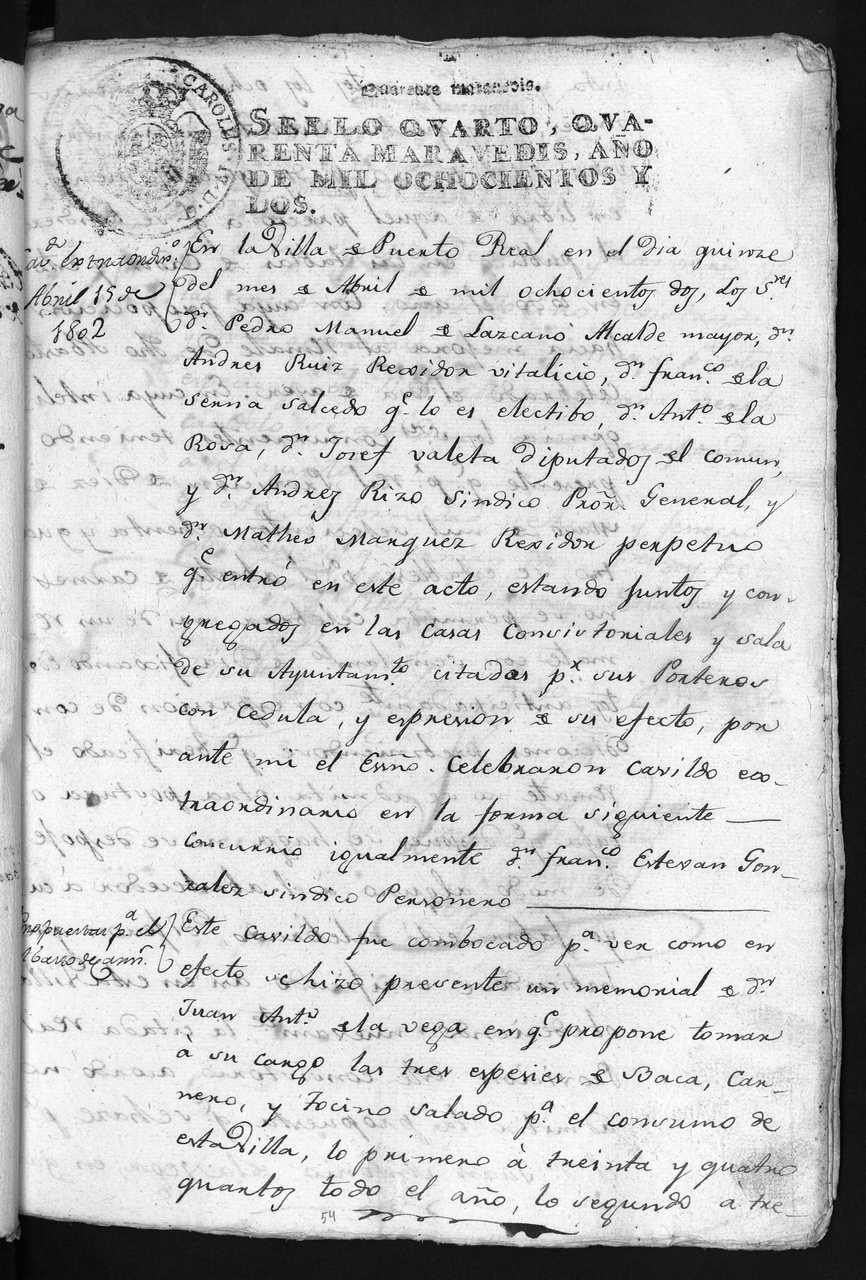 Quarenta maravedis.
CAROLUS IV D. G.
SELLO QVARTO, QVA-
RENTA MARAVEDIS, AÑO
DE MIL OCHOCIENTOS Y
DOS.
Cavdo. extraordinro.
Abril 15 de
1802
En la Villa de Puerto Real en el dia quinze
del mes de Abril de mil ochocientos dos, Los Sres.
Dn. Pedro Manuel de Lazcano Alcalde mayor, Dn.
Andres Ruiz Rexidor vitalicio, Dn. Franco. de la
Serna Salcedo qe. lo es electibo, Dn. Anto. de la
Rosa, Dn. Josef Valeta Diputados del comun,
y Dn. Andres Rizo Sindico Pror. General, y
Dn. Matheo Marquez Rexidor perpetuo
qe. entró en este acto, estando juntos y con-
gregados en las Casas Consistoriales y sala
de su Ayuntamto. citados pr. sus Porteros
con cedula, y espresion de su efecto, por
ante mi el Essno. Celebraron Cavildo ex-
traordinario en la forma siguiente
Concurrio igualmente Dn. Franco. Estevan Gon-
zalez Sindico Personero
Propuestas pa. el
Abasto de carns.
Este Cavildo fue combocado pa. ver como en
efecto se hizo presente un memorial de Dn.
Juan Anto. de la Vega en qe. propone tomar
à su cargo las tres especies de Baca, Car-
nero, y Tocino salado pa. el consumo de
esta Villa, lo primero à treinta y quatro
quartos todo el año, lo segundo à tre-
54